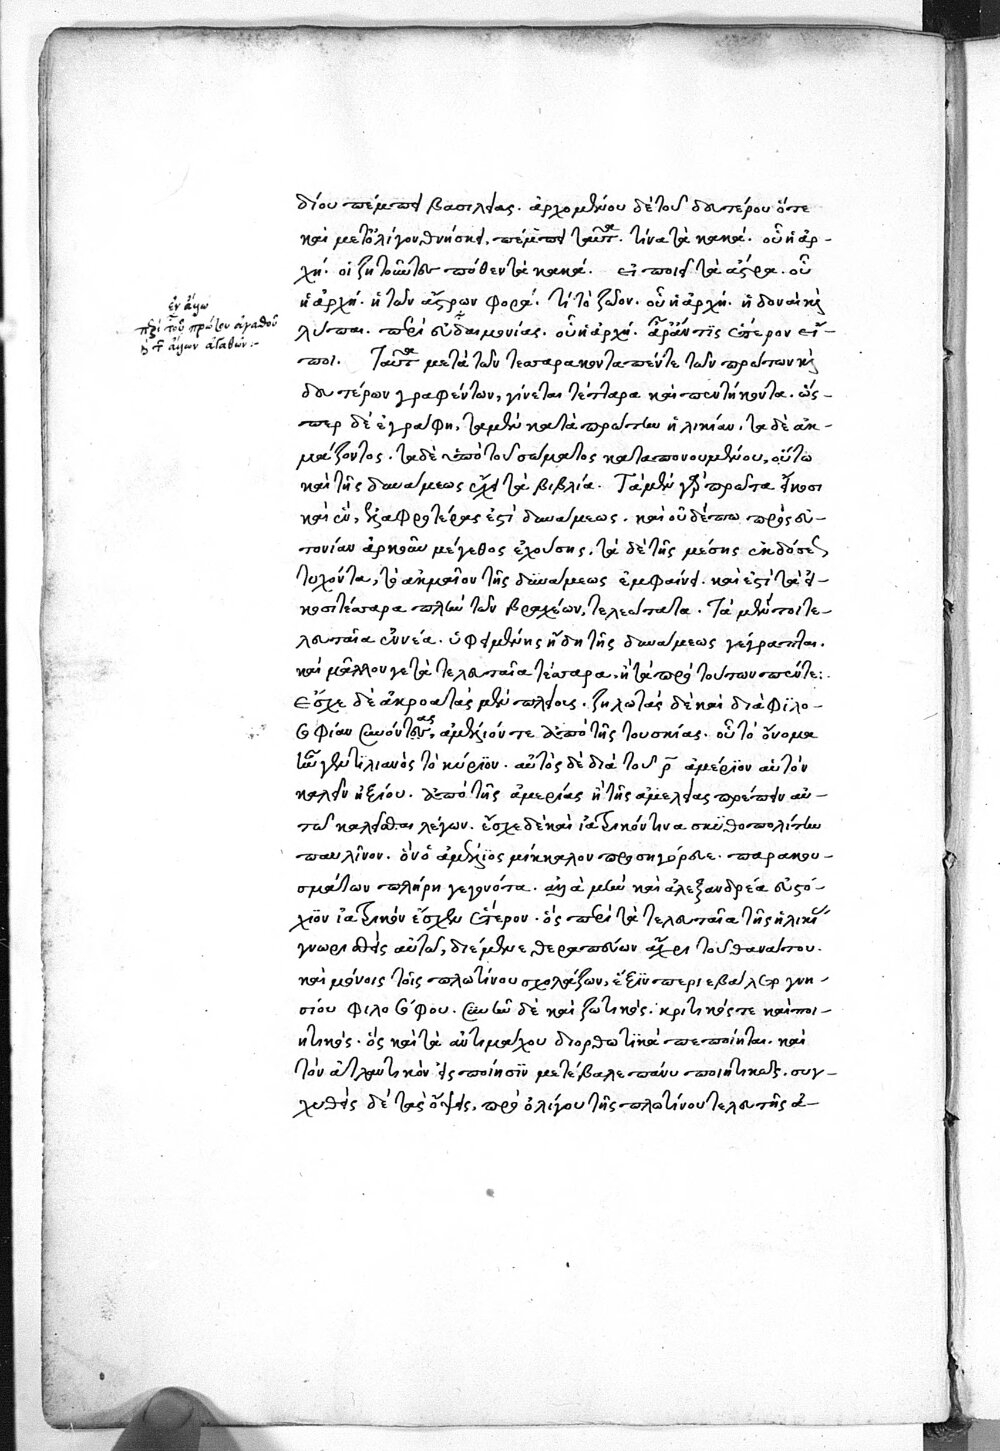 ἐν ἄλλω
περὶ τοῦ πρώτου ἀγαθοῦ
καὶ τῶν ἄλλων ἀγαθῶν:-
δίου πέμπει βασιλείας. ἀρχομένου δὲ τοῦ δευτέρου ὅτε
καὶ μετολίγον θνήσκει, πέμπει ταῦτα. τίνα τὰ κακά. οὗ ἡ ἀρ-
χή. οἱ ζητοῦντες πόθεν τὰ κακά. εἰ ποιεῖ τὰ ἄστρα. οὗ
ἡ ἀρχή. ἡ τῶν ἄστρων φορά. τί τὸ ζῶον. οὗ ἡ ἀρχή. ἡδοναὶ καὶ
λύπαι. περὶ εὐδαιμονίας. οὗ ἡ ἀρχή. ἆρ' ἄν τις ἕτερον εἴ-
ποι. Ταῦτα μετὰ τῶν τεσσαρακονταπέντε τῶν πρώτων καὶ
δευτέρων γραφέντων, γίνεται τέτταρα καὶ πεντήκοντα. ὥς-
περ δὲ ἐγράφη, τὰ μὲν κατὰ πρώτην ἡλικίαν, τὰ δὲ ἀκ-
μάζοντος. τὰ δὲ ὑπὸ τοῦ σώματος καταπονουμένου, οὕτω
καὶ τῆς δυνάμεως ἔχει τὰ βιβλία. Τὰ μὲν γὰρ πρῶτα εἴκοσι
καὶ ἓν, ἐλαφροτέρας ἐστὶ δυνάμεως. καὶ οὐδέπω πρὸς εὐ-
τονίαν ἀρκοῦν μέγεθος ἐχούσης. τὰ δὲ τῆς μέσης ἐκδόσεως
τυχόντα, τὸ ἀκμαῖον τῆς δυνάμεως ἐμφαίνει. καὶ ἐστὶ τὰ εἴ-
κοσιτέσσαρα πλὴν τῶν βραχέων, τελεώτατα. Τὰ μέντοι τε-
λευταῖα ἐννέα. ὑφειμένης ἤδη τῆς δυνάμεως γέγραπται.
καὶ μᾶλλον γε τὰ τελευταῖα τέσσαρα, ἢ τὰ πρὸ τούτων πέντε:.
Ἔσχε δὲ ἀκροατὰς μὲν πλείους. ζηλωτὰς δὲ καὶ διὰ φιλο-
σοφίαν συνόντας, ἀμέλιόν τε ἀπὸ τῆς τουσκίας. οὗ τὸ ὄνομα
ἦν γεντιλιανὸς τὸ κύριον. αὐτὸς δὲ διὰ τοῦ ρ ἀμέριον αὑτὸν
καλεῖν ἠξίου. ἀπὸ τῆς ἀμερίας ἢ τῆς ἀμελείας πρέπειν αὐ-
τῷ καλεῖσθαι λέγων. ἔσχε δὲ καὶ ἰατρικόν τινα σκυθοπολίτην
παυλῖνον. ὃν ὁ ἀμέλιος μίκκαλον προσηγόρευε. παρακου-
σμάτων πλήρη γεγονότα. ἀλλὰ μὴν καὶ ἀλεξανδρέα εὐστό-
χιον ἰατρικὸν ἔσχεν ἕτερον. ὃς περὶ τὰ τελευταῖα τῆς ἡλικίας
γνωρισθεὶς αὐτῷ, διέμεινε θεραπεύων ἄχρι τοῦ θανάτου.
καὶ μόνοις τοῖς πλωτίνου σχολάζων, ἕξιν περιεβάλετο γνη-
σίου φιλοσόφου. συνῆν δὲ καὶ ζωτικός. κριτικός τε καὶ ποι-
ητικός. ὃς καὶ τὰ ἀντιμάχου διορθωτικὰ πεποίηται. καὶ
τὸν ἀτλαντικὸν εἰς ποίησιν μετέβαλε πάνυ ποιητικῶς. συγ-
χυθεὶς δὲ τὰς ὄψεις, πρὸ ὀλίγου τῆς πλωτίνου τελευτῆς ἀ-